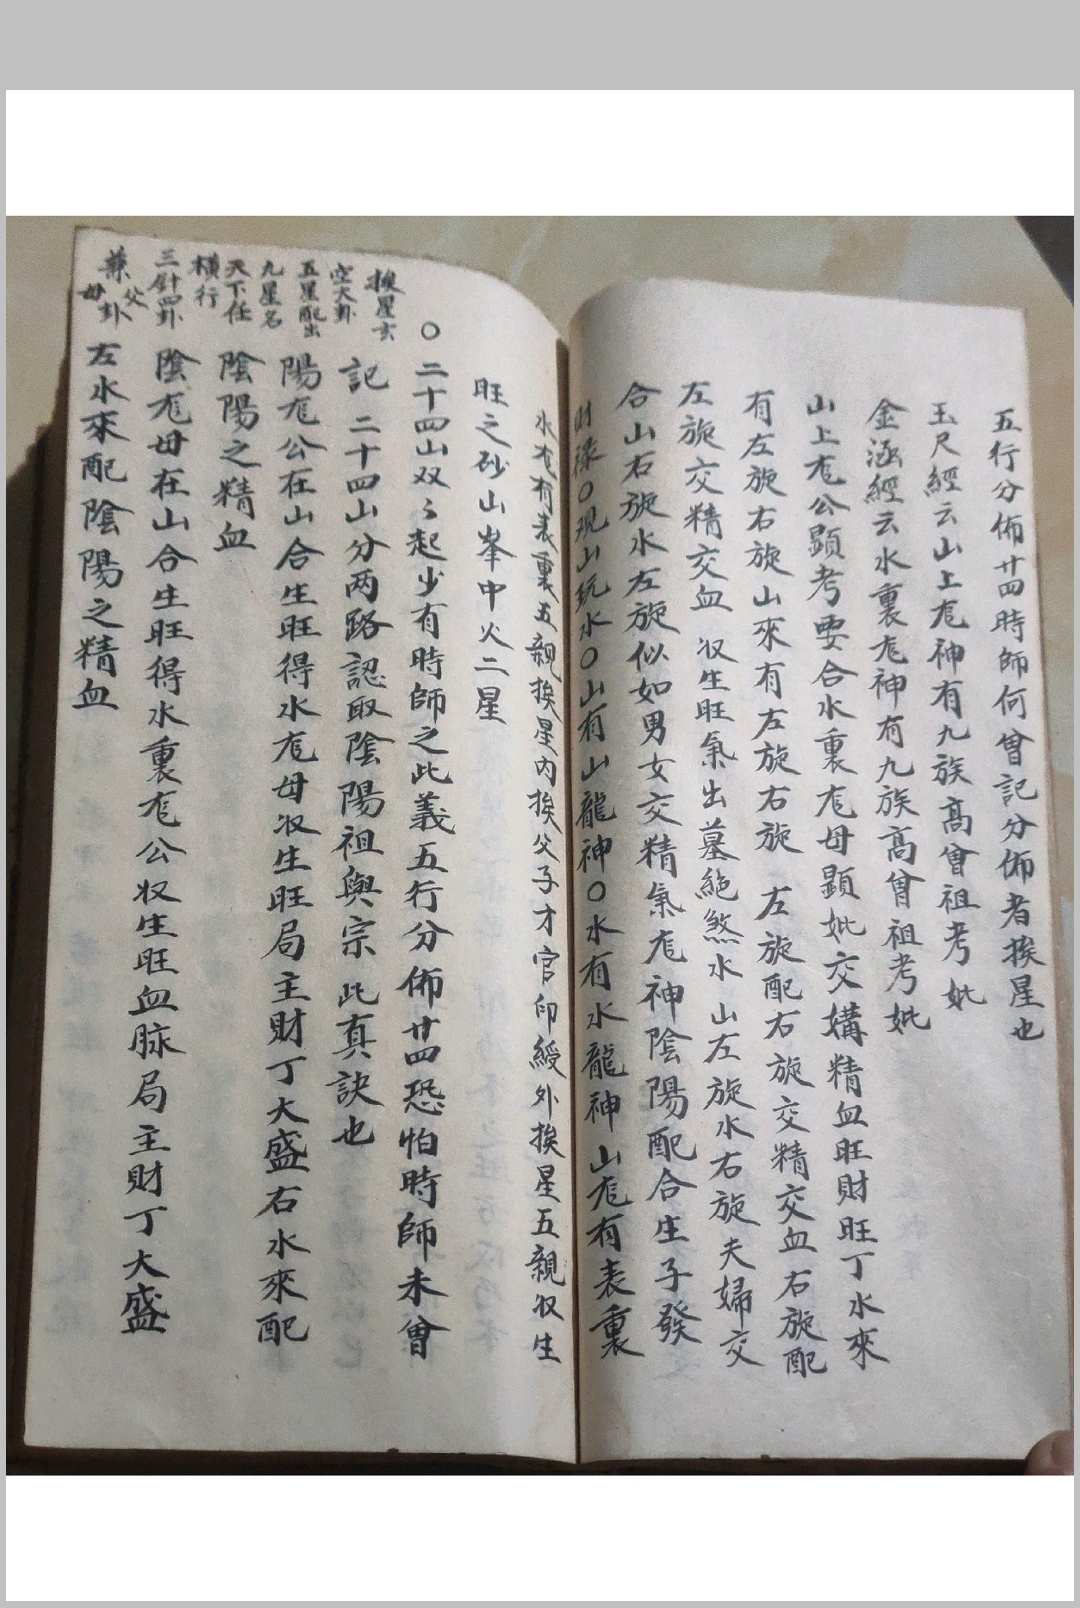 五行分佈廿四時師何曾記分佈者挨星也
玉尺經云山上尨神有九族高曾祖考妣
金涵經云水裏尨神有九族高曾祖考妣
山上尨公顕考要合水裏尨母顕妣交媾精血旺財旺丁水來
有左旋右旋山來有左旋右旋 左旋配右旋交精交血右旋配
左旋交精交血 収生旺氣出墓絕煞水山左旋水右旋夫婦交
合山右旋水左旋似如男女交精氣尨神陰陽配合生子發
財祿○观山玩水○山有山龍神○水有水龍神山尨有表裏
水尨有表裏五親挨星內挨父子才官印綬外挨星五親収生
旺之砂山峯中火二星
○二十四山双々起少有時師之此義五行分佈廿四恐怕時師未曾
記 二十四山分两路認取陰陽祖與宗 此真訣也
陽尨公在山合生旺得水尨母収生旺局主財丁大盛右水來配
陰陽之精血
陰尨母在山合生旺得水裏尨公収生旺血脉局主財丁大盛
左水來配陰陽之精血
挨星玄
空大卦
五星配出
九星名
天下任
橫行
三針四卦
兼父
母卦